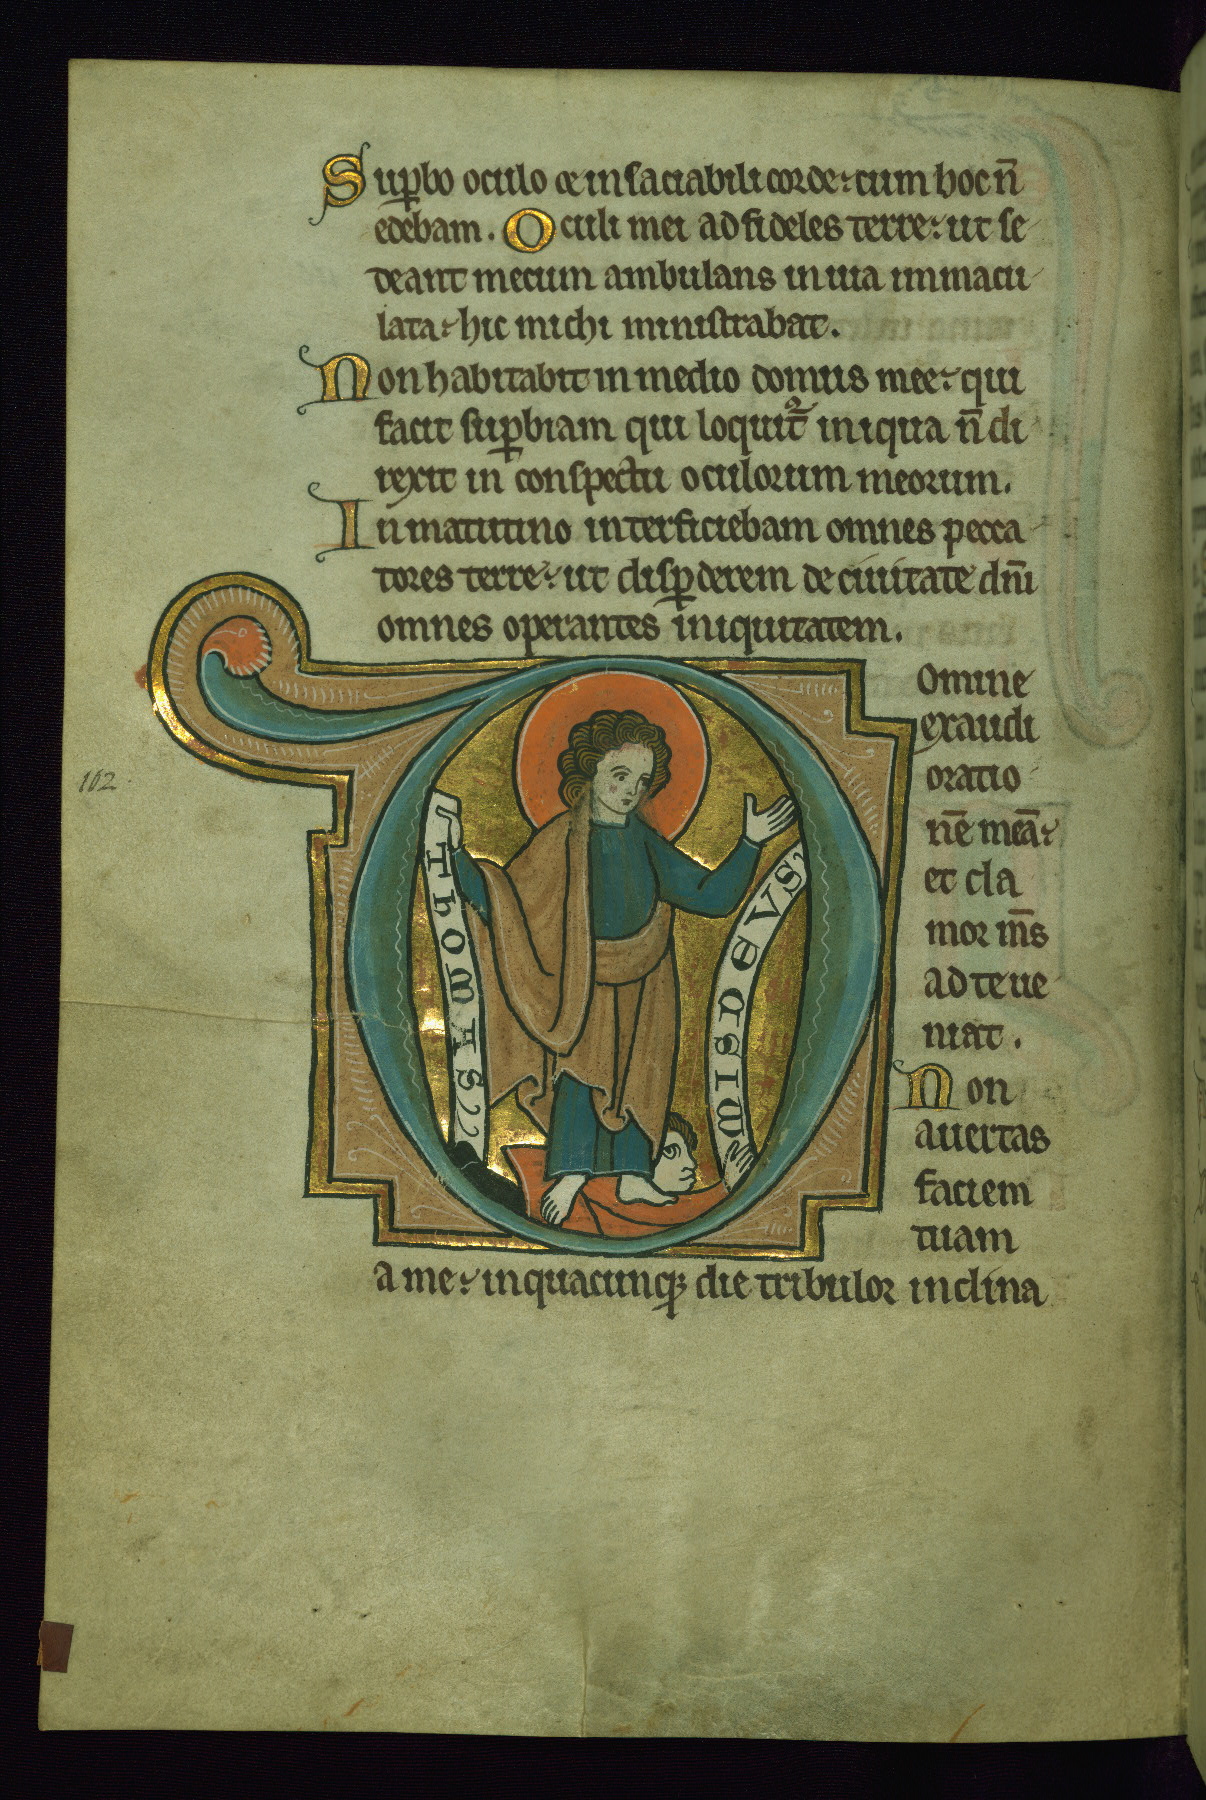 Sup̱bo oculo ⁊ insaciabili corde: cum hoc n̄
edebam. Oculi mei ad fideles terre: ut se
deant mecum ambulans in uia immacu
lata: hic michi ministrabat.
Non habitabit in medio domus mee: qui
facit sup̱biam qui loquit᷒ iniqua n̄ di
rexit in conspectu oculorum meorum.
In matutino interficiebam omnes pecca
tores terre: ut disp̱derem de ciuitate dn̄i
omnes operantes iniquitatem.
Domine
exaudi
oratio
nē meā:
et cla
mor m̄s
ad te ue
niat.
102
THOMAS
MISDEUS
Non
auertas
faciem
tuam
a me: in quacunq; die tribulor inclina